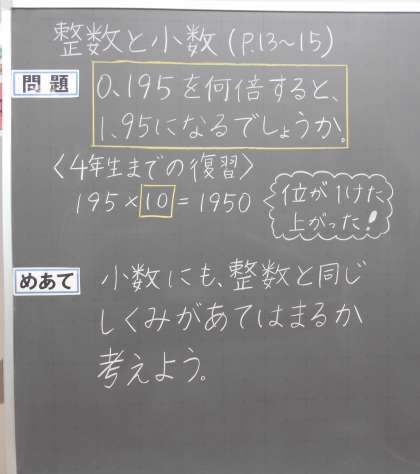 整数と小数(P.13～15)
問題
0.195を何倍すると、
1.95になるでしょうか。
〈4年生までの復習〉
195×10=1950
位が1けた
上がった!
めあて
小数にも、整数と同じ
しくみがあてはまるか
考えよう。